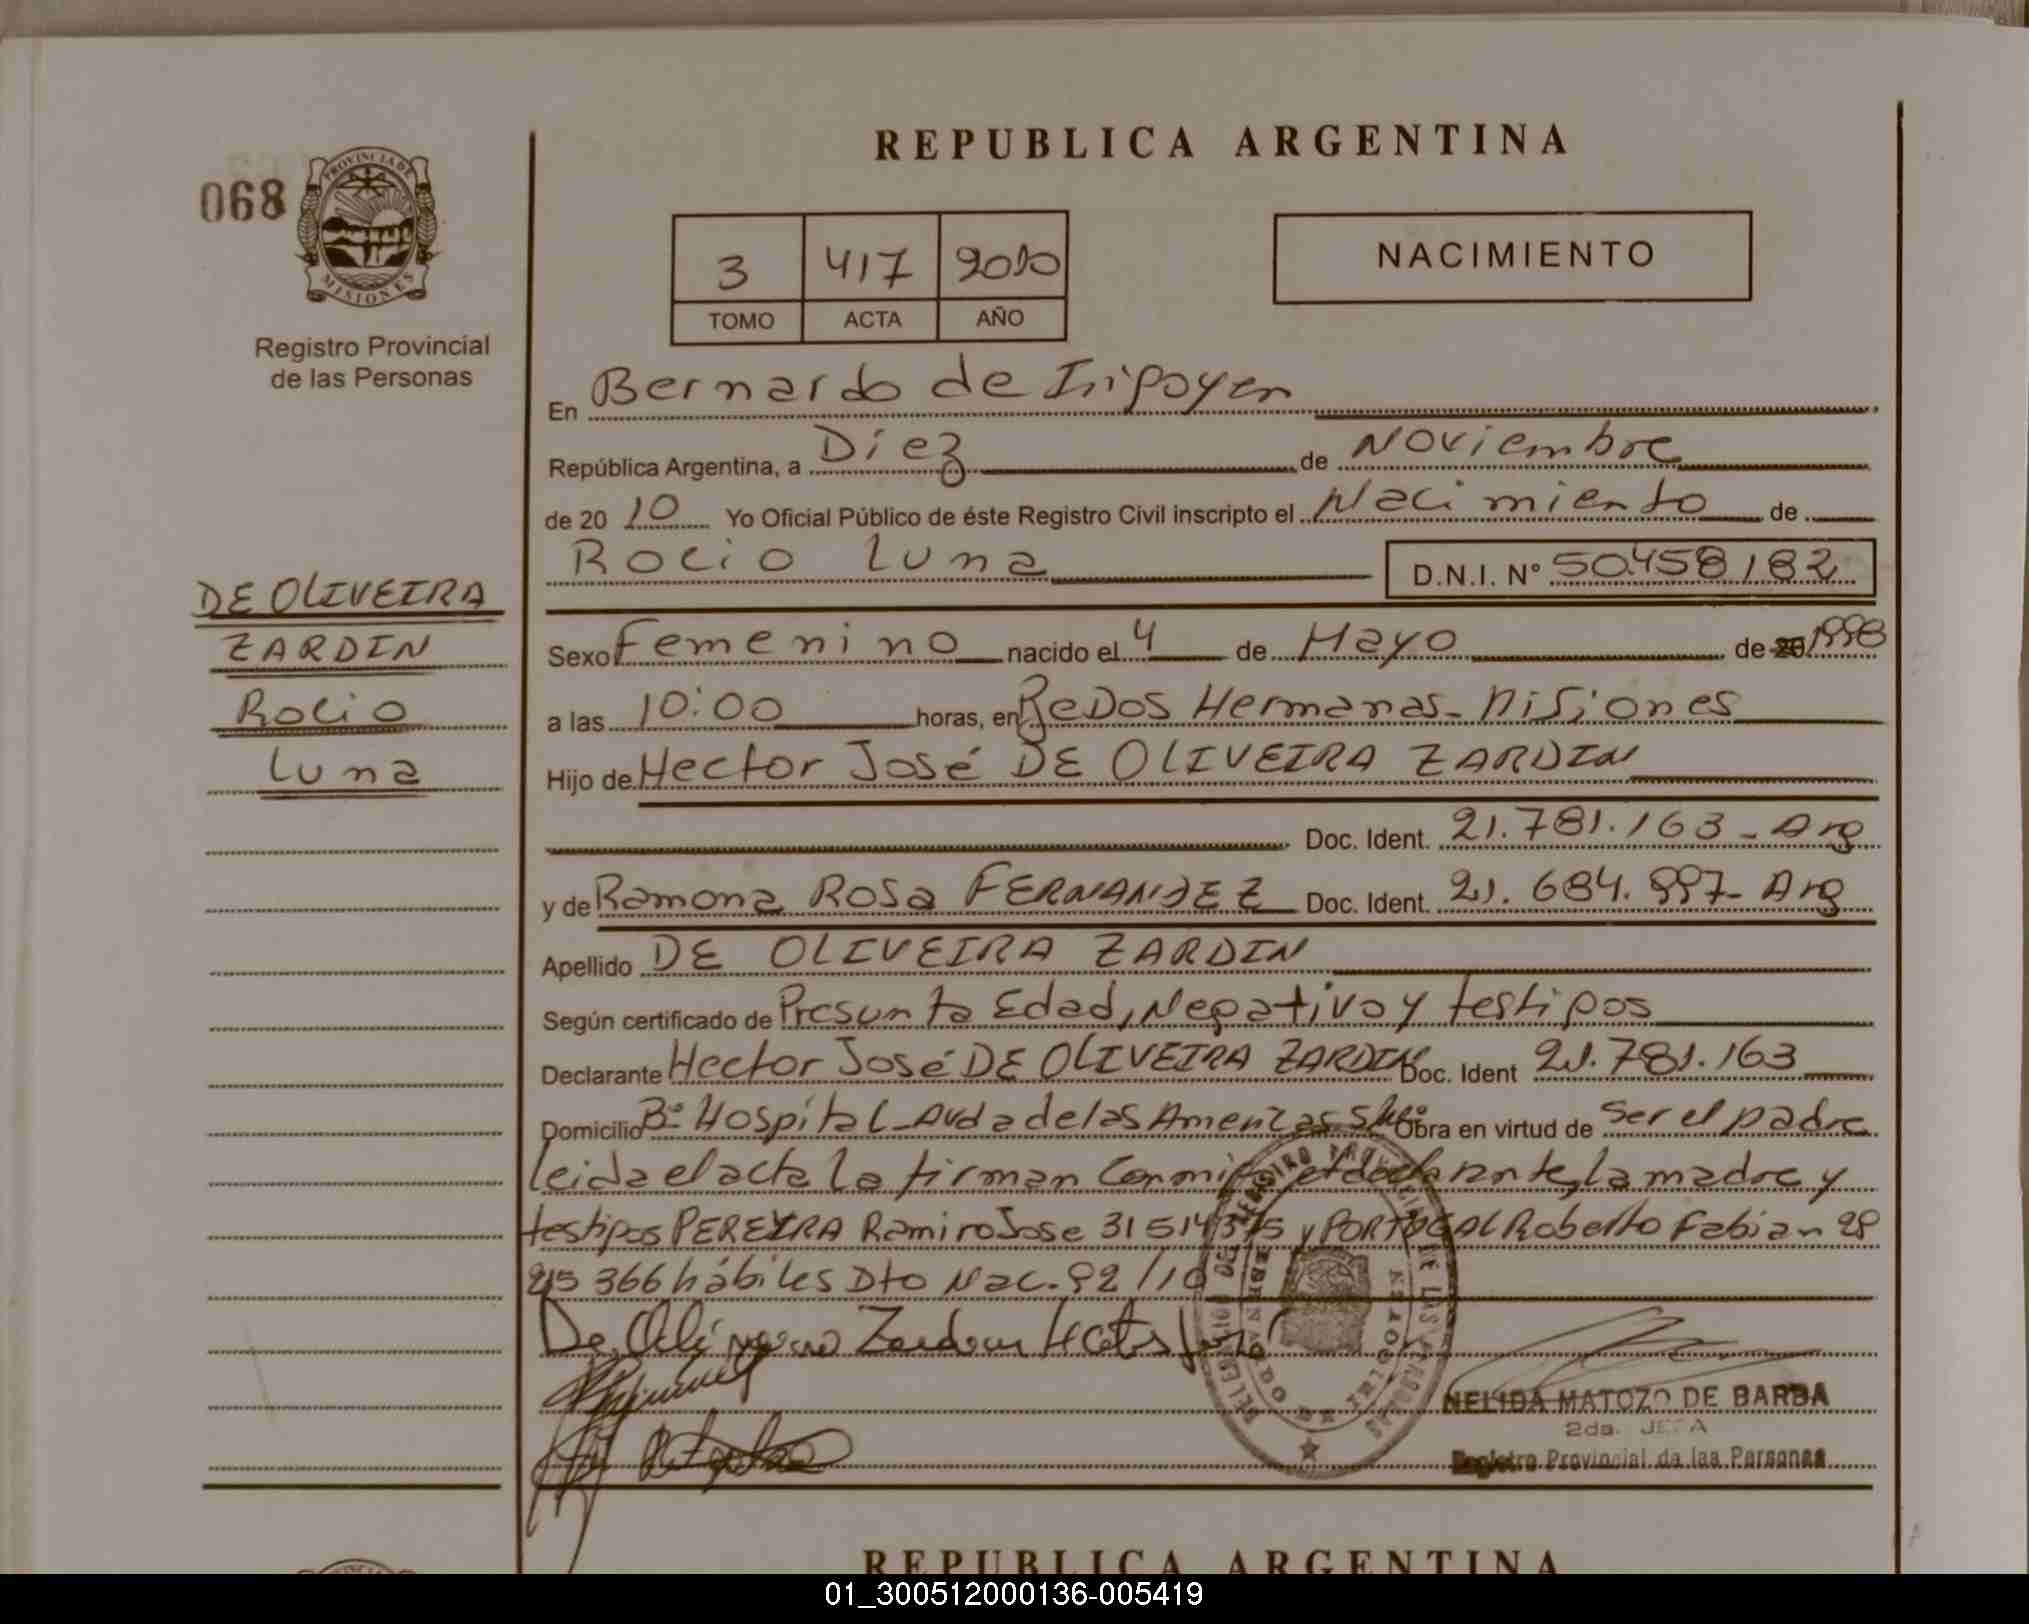 REPUBLICA ARGENTINA
068
PROVINCIA DE
MISIONES
Registro Provincial
de las Personas
3 417 2010
TOMO ACTA AÑO
NACIMIENTO
DE OLIVEIRA
ZARDIN
Rocio
Luna
En Bernardo de Irigoyen
República Argentina, a Diez de Noviembre
de 20 10 Yo Oficial Público de éste Registro Civil inscripto el Nacimiento de
Rocio Luna D.N.I. N° 50.458.182
Sexo Femenino nacido el 4 de Mayo de 20 1998
a las 10:00 horas, en Dos Hermanas - Misiones
Hijo de Hector José DE OLIVEIRA ZARDIN
Doc. Ident. 21.781.163 - Arg
y de Ramona Rosa FERNANDEZ Doc. Ident. 21.684.997 - Arg
Apellido DE OLIVEIRA ZARDIN
Según certificado de Presunta Edad, Negativo y testigos
Declarante Hector José DE OLIVEIRA ZARDIN Doc. Ident 21.781.163
Domicilio B° Hospital - Avda de las Americas S/N° Obra en virtud de Ser el padre
leida el acta la firman Conmigo el declarante, la madre y
testigos PEREYRA Ramiro Jose 31 514 375 y PORTUGAL Roberto Fabian 28
215 366 hábiles Dto Nac. 92/10
NELIDA MATOZO DE BARBA
2da. JEFA
Registro Provincial de las Personas
REPUBLICA ARGENTINA
01_300512000136-005419